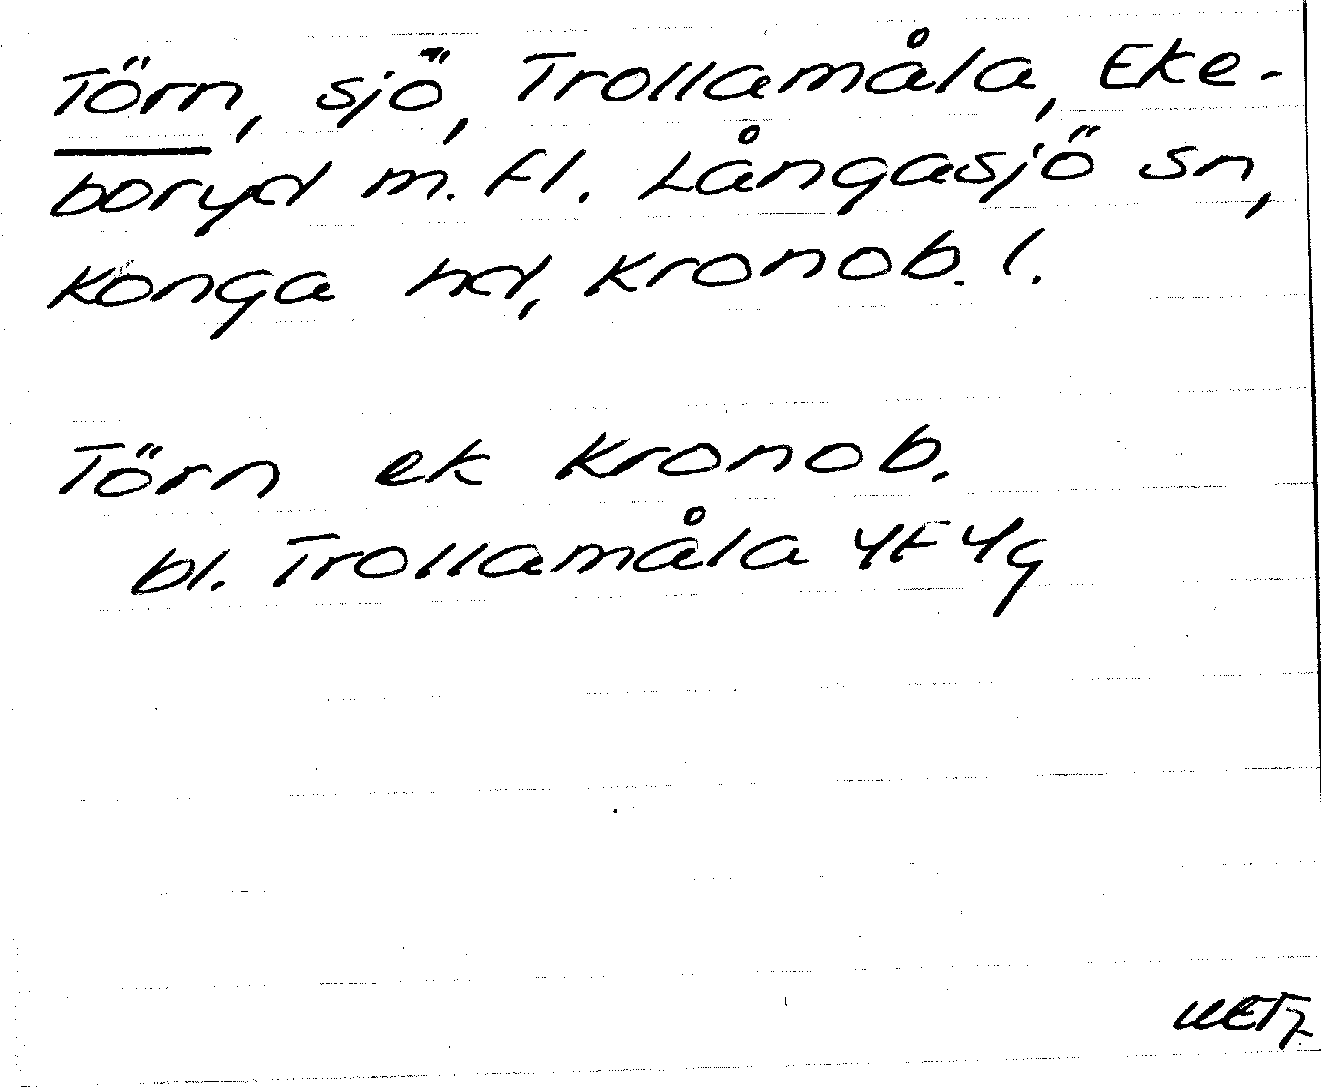 Törn, sjö, Trollamåla, Eke-
boryd m. fl. Långasjö sn,
Konga hd, Kronob. l.
Törn ek Kronob.
bl. Trollamåla 4F4g